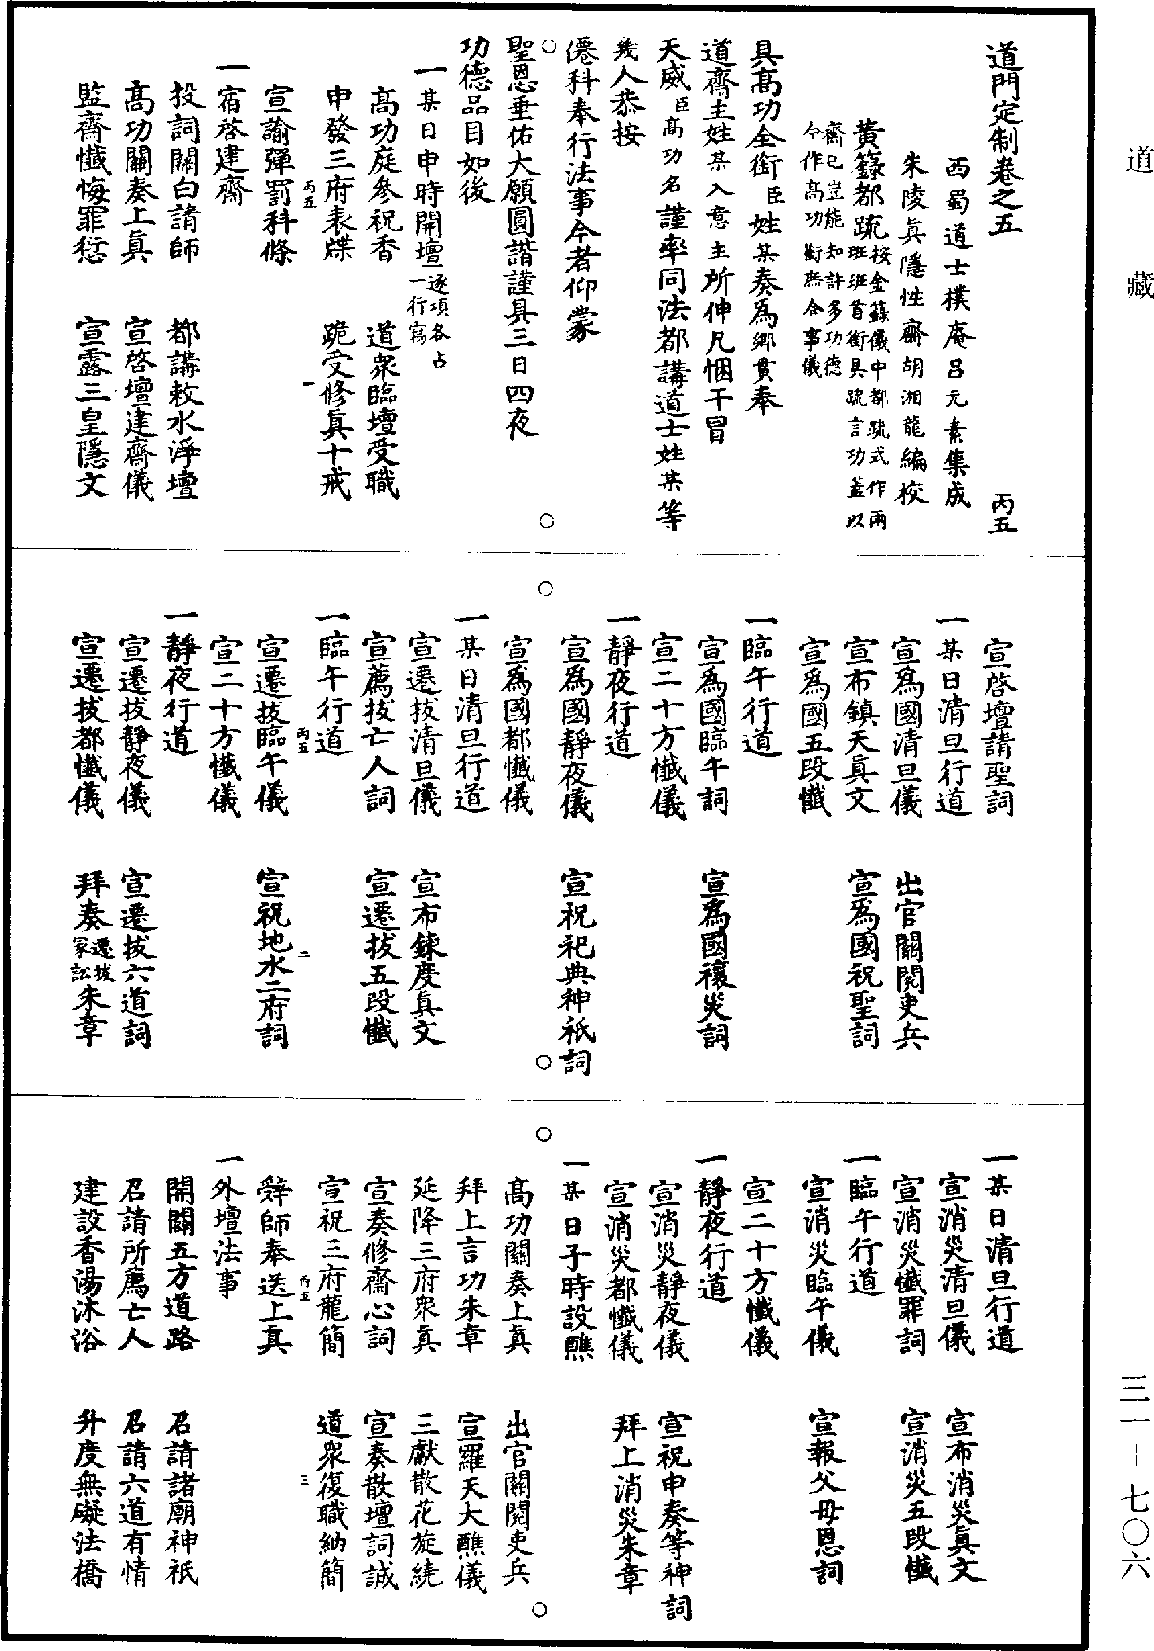 道藏
道門定制卷之五　丙五
西蜀道士樸庵呂元素集成
朱陵眞隱性齋胡湘龍編校
黃籙都疏按金籙儀中都疏式作兩班班首銜具疏言功蓋以齋已豈能知許多功德今作高功銜無合事儀
具高功全銜臣姓某奏爲鄉貫奉
道齋主姓某入意主所伸凡悃干冒
天威臣高功名謹率同法都講道士姓某等
幾人恭按
僊科奉行法事今者仰蒙
聖恩垂佑大願圓諧謹具三日四夜
功德品目如後
一某日申時開壇逐項各占一行寫
高功庭參祝香　道衆臨壇受職
申發三府表牒　跪受修眞十戒
丙五　一
宣諭彈罰科條
一宿啓建齋
投詞關白請師　都講敕水淨壇
高功關奏上眞　宣啓壇建齋儀
監齋懺悔罪愆　宣露三皇隱文
宣啓壇請聖詞
一某日清旦行道
宣爲國清旦儀　出官關閱吏兵
宣布鎮天眞文　宣爲國祝聖詞
宣爲國五段懺
一臨午行道
宣爲國臨午詞　宣爲國禳災詞
宣二十方懺儀
一靜夜行道
宣爲國靜夜儀　宣祝祀典神祇詞
宣爲國都懺儀
一某日清旦行道
宣遷拔清旦儀　宣布鍊度眞文
宣薦拔亡人詞　宣遷拔五段懺
一臨午行道
丙五　二
宣遷拔臨午儀　宣祝地水二府詞
宣二十方懺儀
一靜夜行道
宣遷拔靜夜儀　宣遷拔六道詞
宣遷拔都懺儀　拜奏遷拔冢訟朱章
一某日清旦行道
宣消災清旦儀　宣布消災眞文
宣消災懺罪詞　宣消災五段懺
一臨午行道
宣消災臨午儀　宣報父母恩詞
宣二十方懺儀
一靜夜行道
宣消災靜夜儀　宣祝申奏等神詞
宣消災都懺儀　拜上消災朱章
一某日子時設醮
高功關奏上眞　出官關閱吏兵
拜上言功朱章　宣羅天大醮儀
延降三府衆眞　三獻散花旋繞
宣奏修齋心詞　宣奏散壇詞誠
宣祝三府龍簡　道衆復職納簡
丙五　三
辤師奉送上眞
一外壇法事
開闢五方道路　召請諸廟神祇
召請所薦亡人　召請六道有情
建設香湯沐浴　升度無礙法橋
三一－七〇六